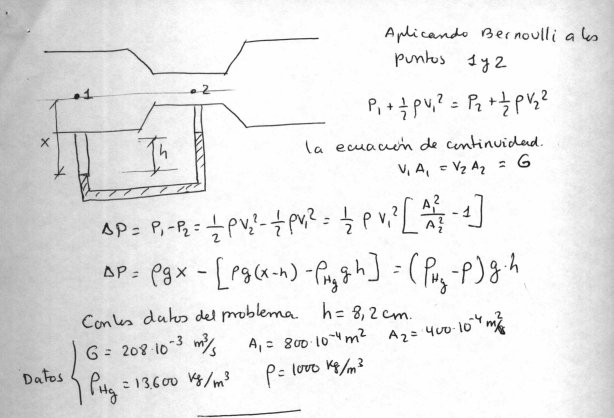 Aplicando Bernoulli a los
puntos 1 y 2
P₁ + ½ρV₁² = P₂ + ½ρV₂²
la ecuación de continuidad.
V₁ A₁ = V₂ A₂ = G
•1
•2
x
h
ΔP = P₁-P₂ = ½ρV₂² - ½ρV₁² = ½ρV₁² [A₁²/A₂² - 1]
ΔP = ρgx - [ρg(x-h) - ρHg g h] = (ρHg - ρ) g·h
Con los datos del problema. h = 8,2 cm.
Datos { G = 208·10⁻³ m³/s A₁ = 800·10⁻⁴ m² A₂ = 400·10⁻⁴ m²
ρHg = 13.600 kg/m³ ρ = 1000 kg/m³